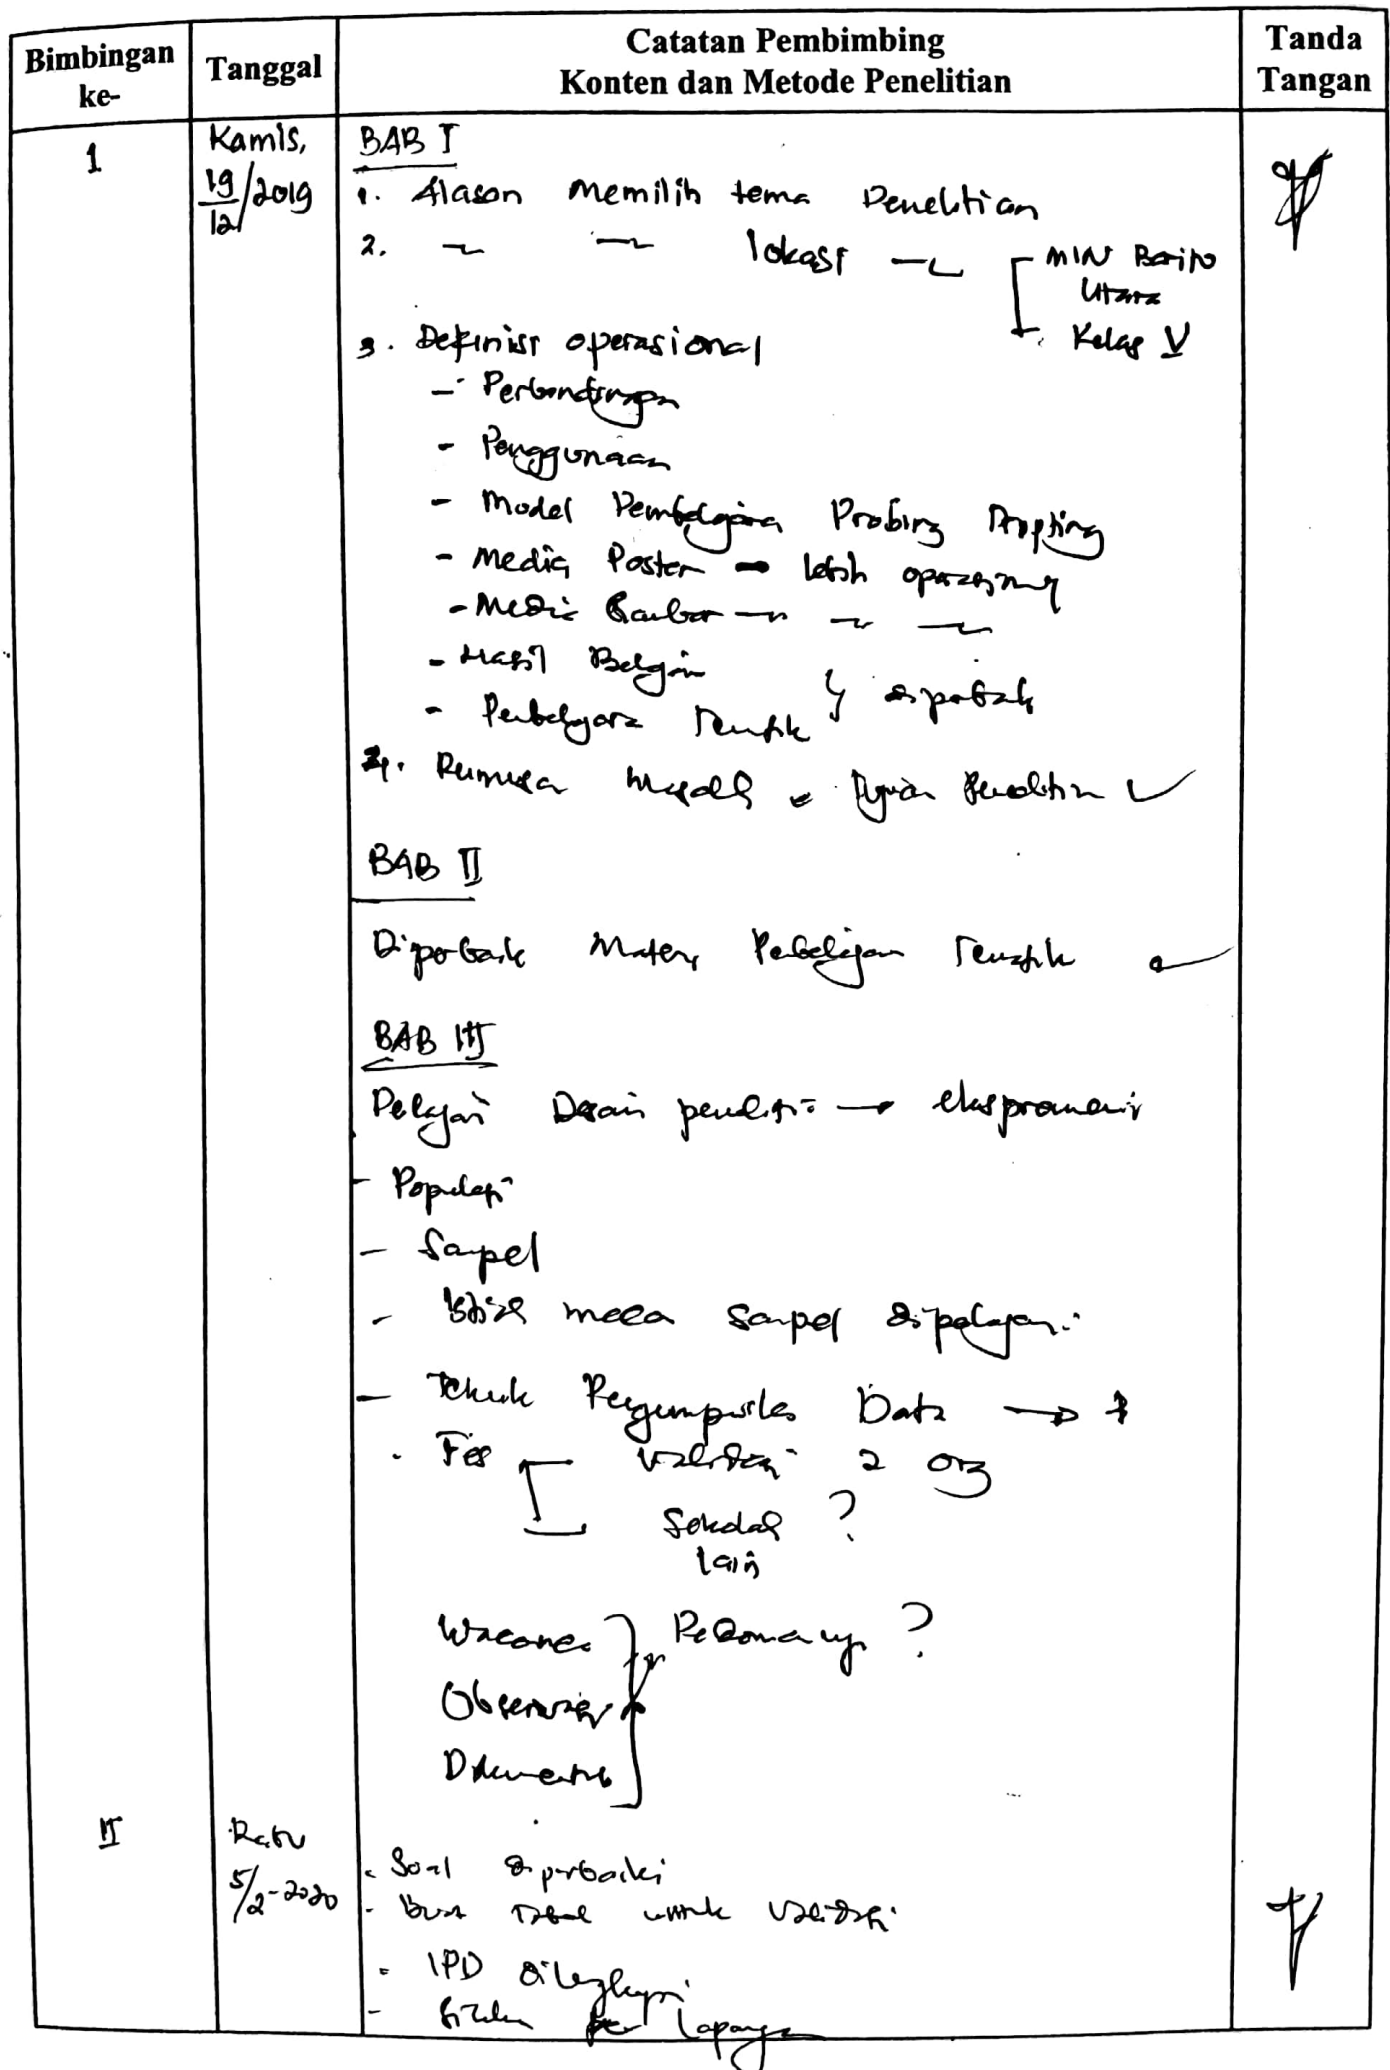 Bimbingan ke-
Tanggal
Catatan Pembimbing
Konten dan Metode Penelitian
Tanda Tangan
1
Kamis,
19/12/2019
BAB I
1. Alasan memilih tema Penelitian
2. ~ ~ lokasi ~ MIN Barito
Utara
Kelas V
3. Definisi operasional
- Perbandingan
- Penggunaan
- Model Pembelajaran Probing Prompting
- Media Poster → lebih operasional
- Media Gambar ~ ~ ~
- Hasil Belajar
- Pembelajaran Tematik } diperbaiki
4. Rumusan masalah Tujuan Penelitian ✓
BAB II
Diperbaiki Materi Pembelajaran Tematik
BAB III
Pelajari Desain penelitian → eksperimen
- Populasi
- Sampel
- sampel dipelajari
- Teknik Pengumpulan Data →
. Tes validasi 2 org
Sekolah ?
lain
Wawancara } Pedomannya ?
Observasi
Dokumentasi
II
Rabu
5/2-2020
- Soal diperbaiki
- buat tabel untuk validasi
- IPD dilengkapi
- Silakan ke lapangan